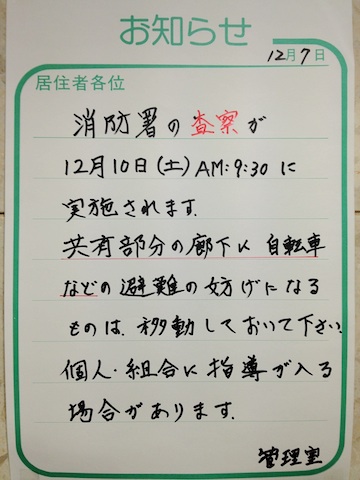 お知らせ
12月7日
居住者各位
消防署の査察が
12月10日(土)AM:9:30に
実施されます.
共有部分の廊下に自転車
などの避難の妨げになる
ものは、移動しておいて下さい.
個人・組合に指導が入る
場合があります.
管理室